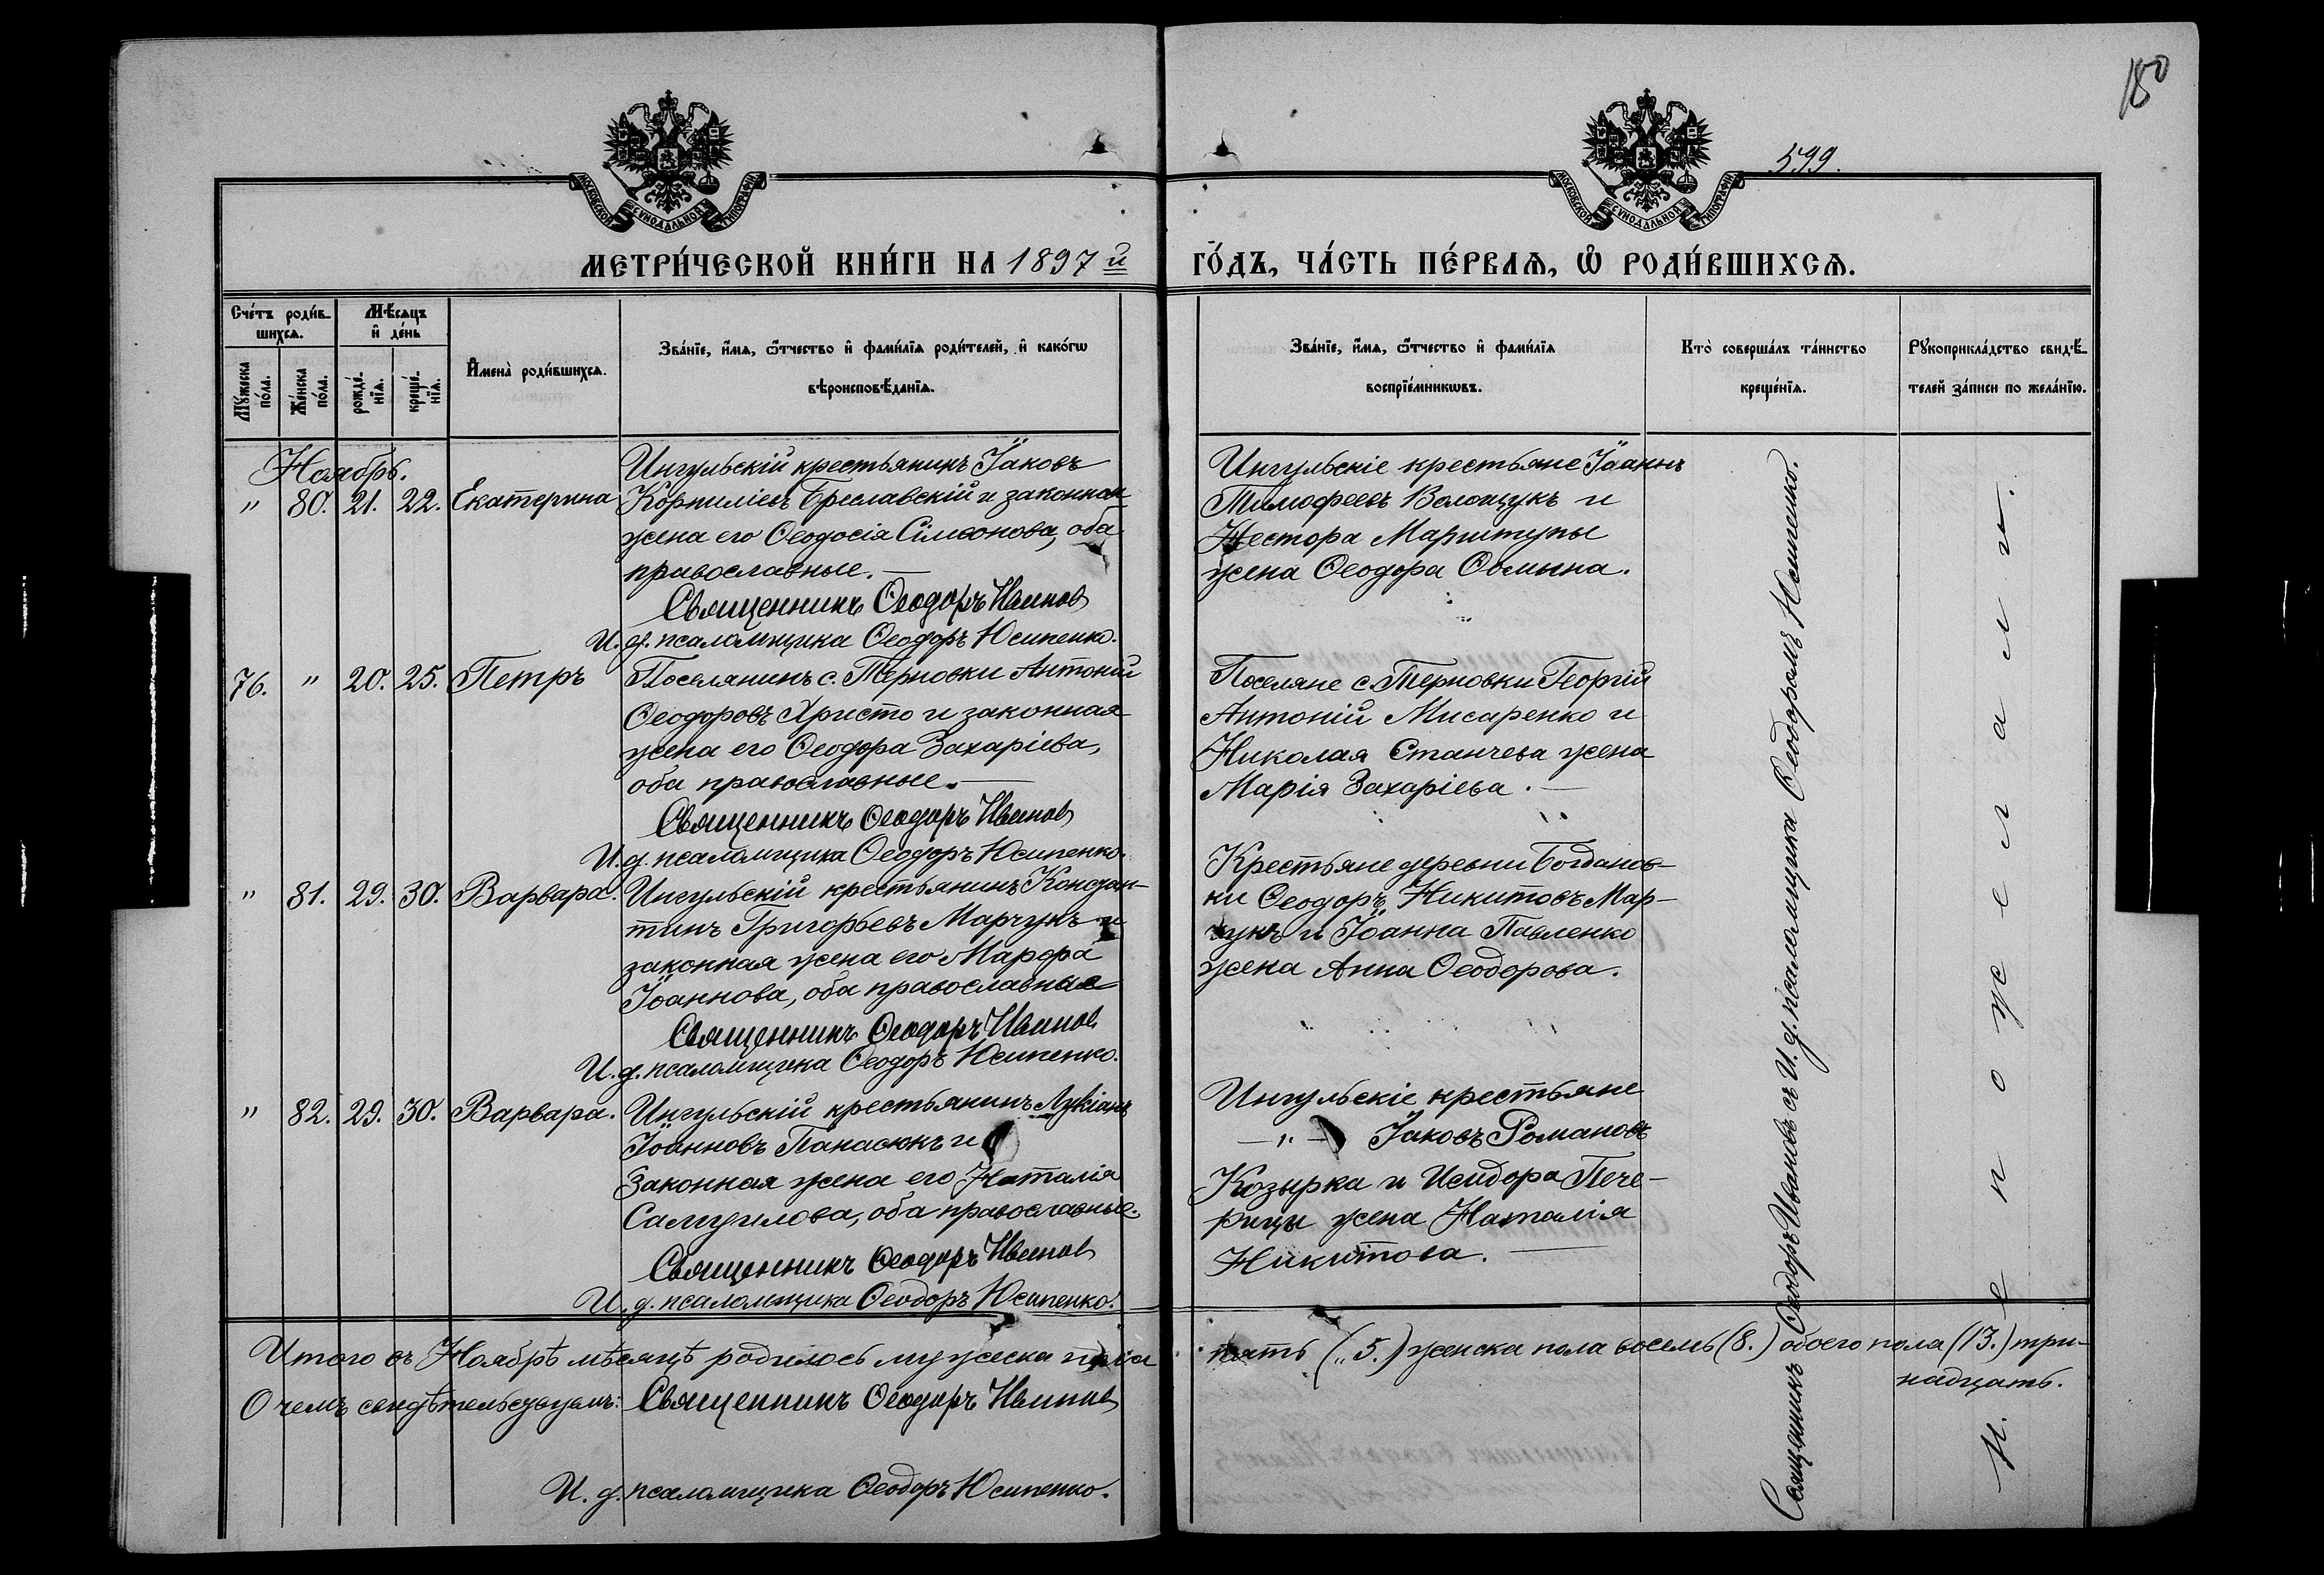 180
599.
МОСКОВСКОЙ СУНОДАЛЬНОЙ ТИПОГРАФІИ
МОСКОВСКОЙ СУНОДАЛЬНОЙ ТИПОГРАФІИ
МЕТРИ́ЧЕСКОЙ КНИ́ГИ НА 1897 й
ГО́ДЪ, ЧА́СТЬ ПЕ́РВАѦ, Ѡ РОДИ́ВШИХСѦ.
Сче́тъ роди́в-
шихсѧ.
Мꙋ́жеска по́ла.
Же́нска по́ла.
Мѣ́сѧцъ
и де́нь
рожде́-
нїѧ.
креще́-
нїѧ.
Имена̀ роди́вшихсѧ.
Зва́нїе, и́мѧ, ѻ́тчество и фами́лїѧ роди́телей, и како́гѡ
вѣроисповѣ́данїѧ.
Зва́нїе, и́мѧ, ѻ́тчество и фами́лїѧ
воспрїе́мникѡвъ.
Кто̀ соверша́лъ та́инство
креще́нїѧ.
Рꙋкоприкла́дство свидѣ́-
телей за́писи по жела́нїю.
Ноябрь.
" 80. 21. 22. Екатерина
Ингульскій крестьянинъ Іаковъ
Корниліевъ Бреславскій и законная
жена его Ѳеодосія Сімеонова, оба
православные.—
Священникъ Ѳеодоръ Ивановъ
И. д. псаломщика Ѳеодоръ Юсипенко.
Ингульскіе крестьяне Іоаннъ
Тимофеевъ Волощукъ и
Нестора Мариштупы
жена Ѳеодора Ѳомина.
76. " 20. 25. Петръ
Поселянинъ с. Терновки Антоній
Ѳеодоровъ Христо и законная
жена его Ѳеодора Захаріева,
оба православные.—
Священникъ Ѳеодоръ Ивановъ
И. д. псаломщика Ѳеодоръ Юсипенко.
Поселяне с. Терновки Георгій
Антоній Мисаренко и
Николая Станчева жена
Марія Захаріева.—
" 81. 29. 30. Варвара.
Ингульскій крестьянинъ Констан-
тинъ Григорьевъ Марчукъ и
законная жена его Марѳа
Іоаннова, оба православные
Священникъ Ѳеодоръ Ивановъ
И. д. псаломщика Ѳеодоръ Юсипенко.
Крестьяне деревни Богданов-
ки Ѳеодоръ Никитовъ Мар-
чукъ и Іоанна Павленко
жена Анна Ѳеодорова.
" 82. 29. 30. Варвара.
Ингульскій крестьянинъ Лукіанъ
Іоанновъ Панасюкъ и
Законная жена его Наталія
Самуилова, оба православные.
Священникъ Ѳеодоръ Ивановъ
И. д. псаломщика Ѳеодоръ Юсипенко.
Ингульскіе крестьяне
—"— Іаковъ Романовъ
Козырка и Исидора Пече-
рицы жена Наталія
Никитова.—
Священникъ Ѳеодоръ Ивановъ съ И. д. псаломщика Ѳеодоромъ Юсипенко.
Не пожелали.
Итого въ Ноябрѣ мѣсяцѣ родилось мужеска пола
пять („5.) женска пола восемь (8.) обоего пола (13.) три-
надцать.
О чемъ свидѣтельствуемъ: Священникъ Ѳеодоръ Ивановъ
И. д. псаломщика Ѳеодоръ Юсипенко.